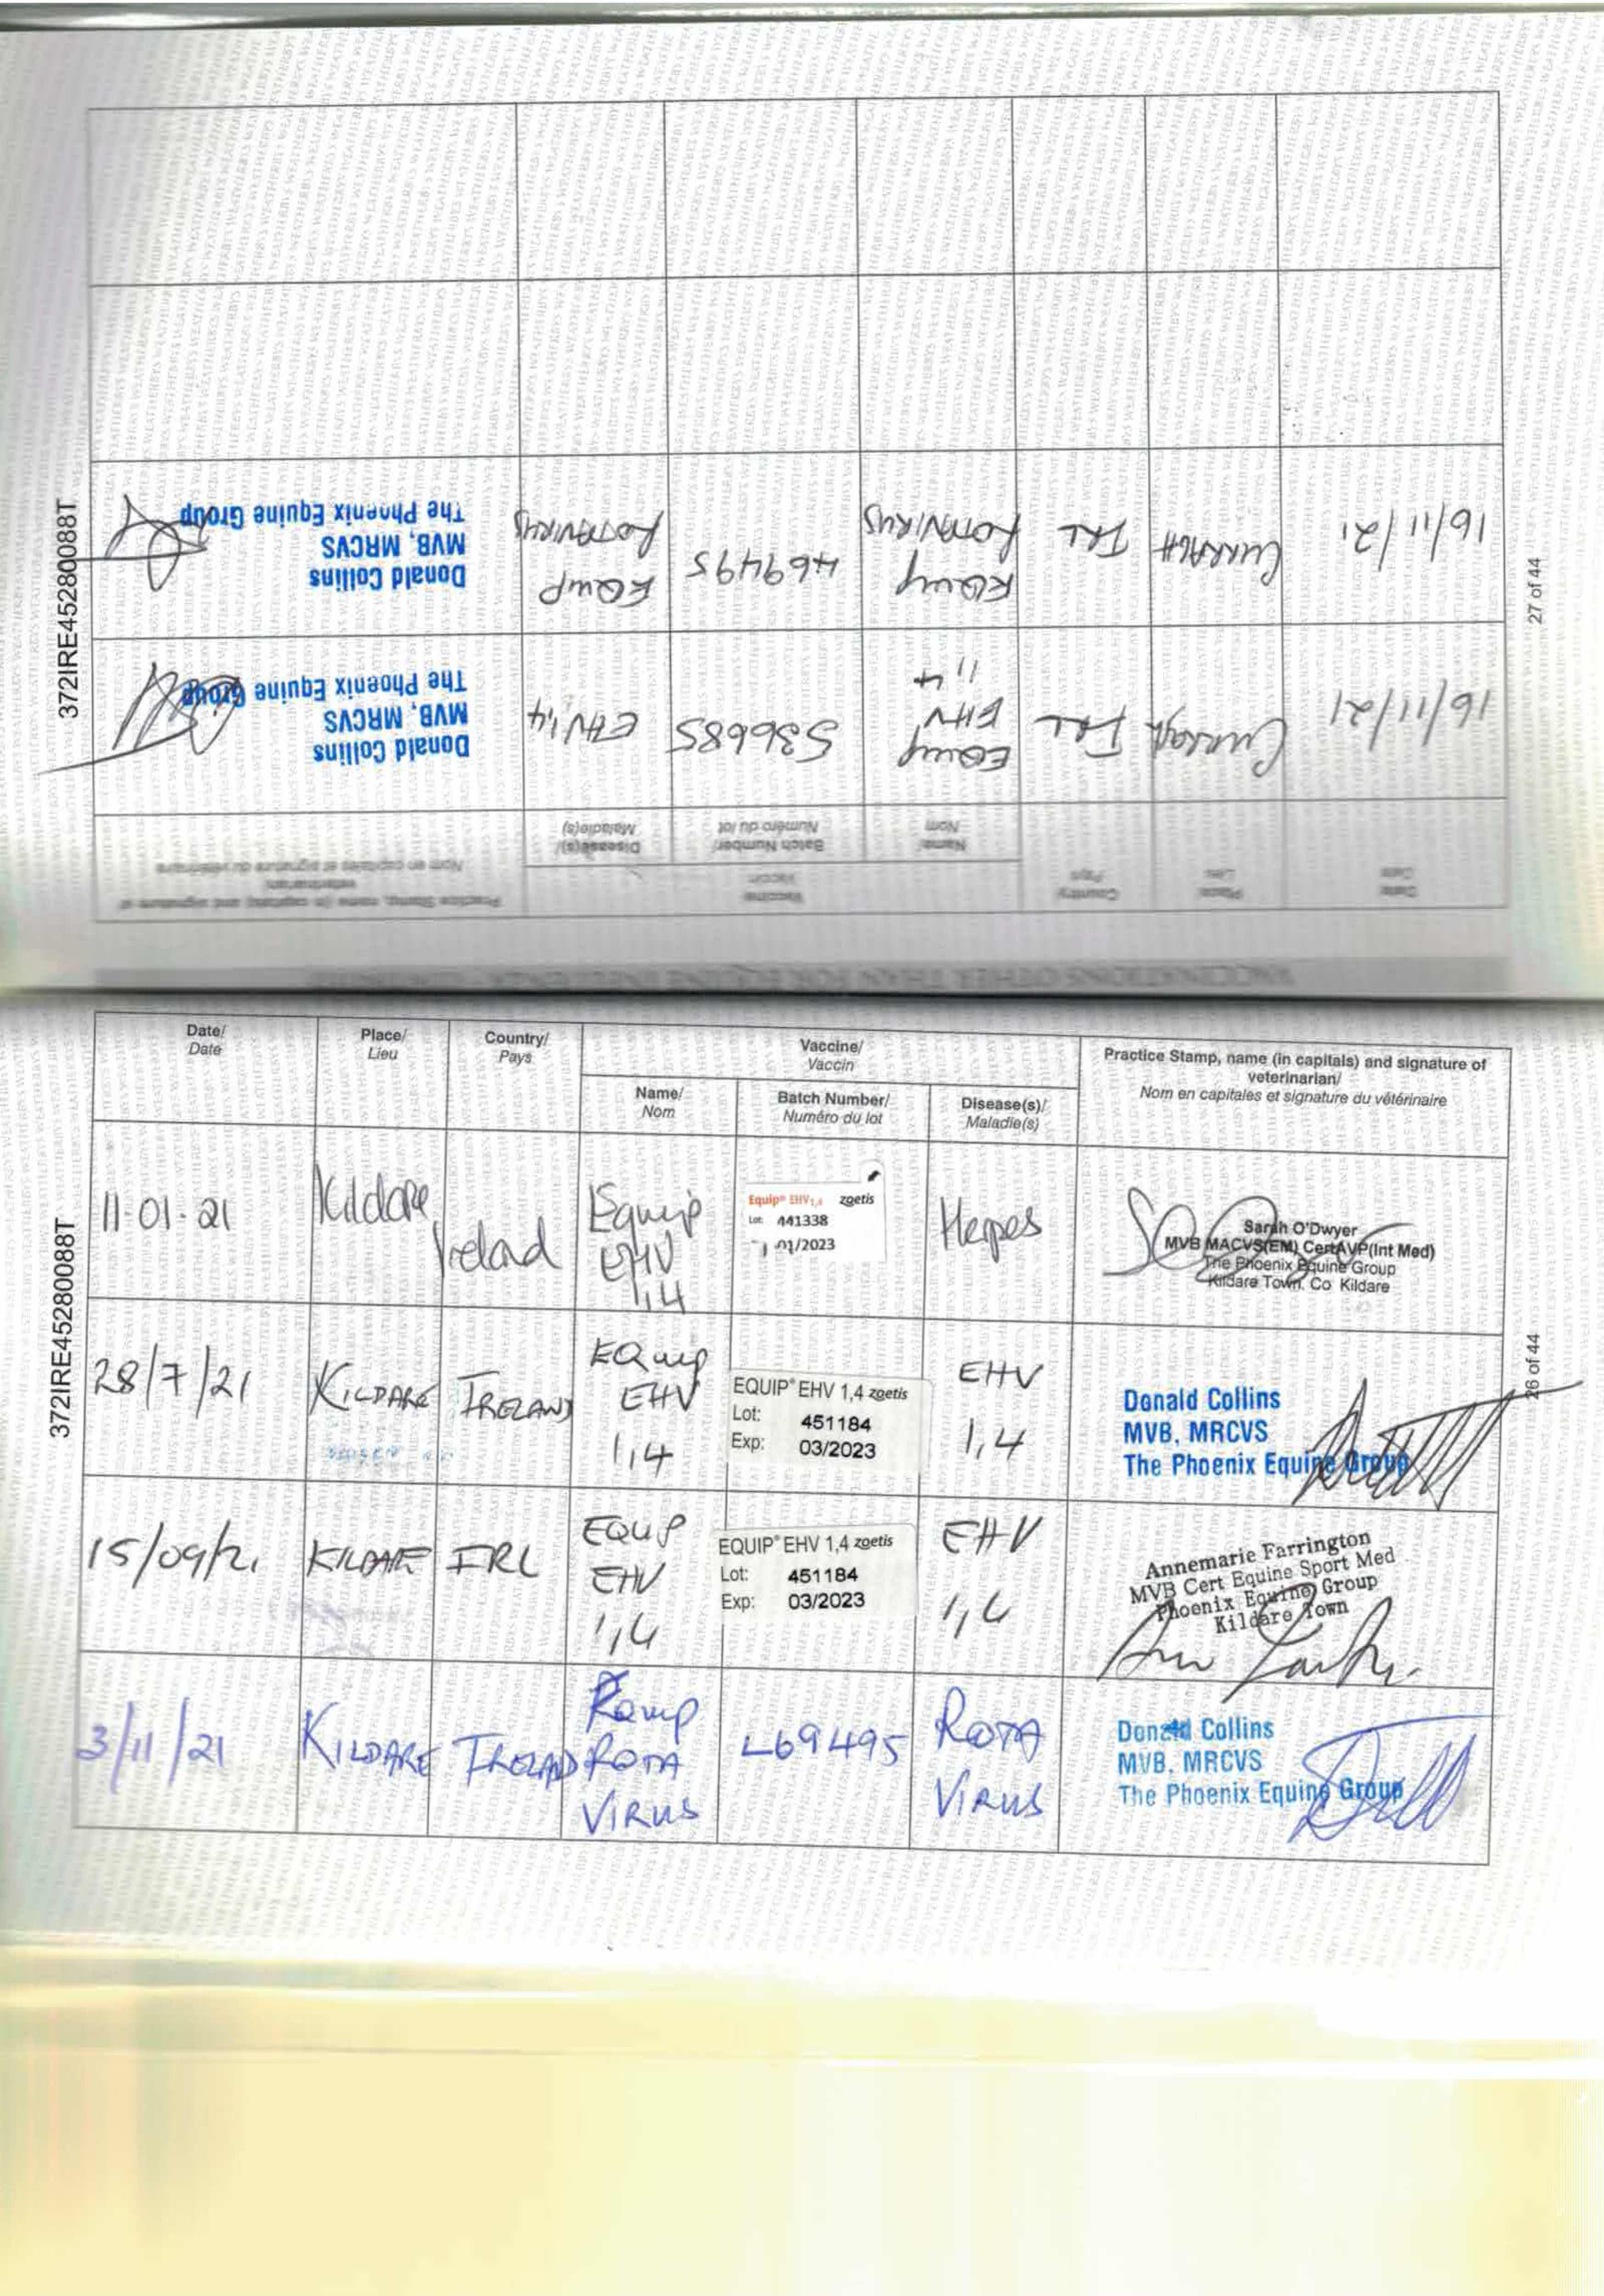 372IRE45280088T
VACCINATIONS OTHER THAN FOR EQUINE INFLUENZA
Date/
Date
Place/
Lieu
Country/
Pays
Vaccine/
Vaccin
Name/
Nom
Batch Number/
Numéro du lot
Disease(s)/
Maladie(s)
Practice Stamp, name (in capitals) and signature of
veterinarian/
Nom en capitales et signature du vétérinaire
16/11/21
Curragh
IRL
EQuip
EHV
1,4
536685
EHV 1,4
Donald Collins
MVB, MRCVS
The Phoenix Equine Group
16/11/21
CURRAGH
IRL
EQuip
ROTAVIRUS
469495
EQuip
ROTAVIRUS
Donald Collins
MVB, MRCVS
The Phoenix Equine Group
27 of 44
372IRE45280088T
Date/
Date
Place/
Lieu
Country/
Pays
Vaccine/
Vaccin
Name/
Nom
Batch Number/
Numéro du lot
Disease(s)/
Maladie(s)
Practice Stamp, name (in capitals) and signature of
veterinarian/
Nom en capitales et signature du vétérinaire
11-01-21
Kildare
Ireland
Equip
EHV
1,4
Equip® EHV1,4 zoetis
Lot: 441338
01/2023
Herpes
Sarah O'Dwyer
MVB MACVS(EM) CertAVP(Int Med)
The Phoenix Equine Group
Kildare Town. Co Kildare
28/7/21
KILDARE
IRELAND
EQuip
EHV
1,4
EQUIP® EHV 1,4 zoetis
Lot: 451184
Exp: 03/2023
EHV
1,4
Donald Collins
MVB, MRCVS
The Phoenix Equine Group
15/09/21
KILDARE
IRL
EQUIP
EHV
1,4
EQUIP® EHV 1,4 zoetis
Lot: 451184
Exp: 03/2023
EHV
1,4
Annemarie Farrington
MVB Cert Equine Sport Med
Phoenix Equine Group
Kildare Town
3/11/21
KILDARE
IRELAND
EQuip
ROTA
VIRUS
L69495
ROTA
VIRUS
Donald Collins
MVB, MRCVS
The Phoenix Equine Group
26 of 44